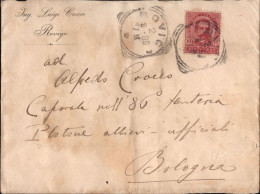 Ing. Luigi
Rovigo
ROVIGO
ad
Alfredo
Caporale nell' 86° fanteria
Plotone allievi - ufficiali
Bologna